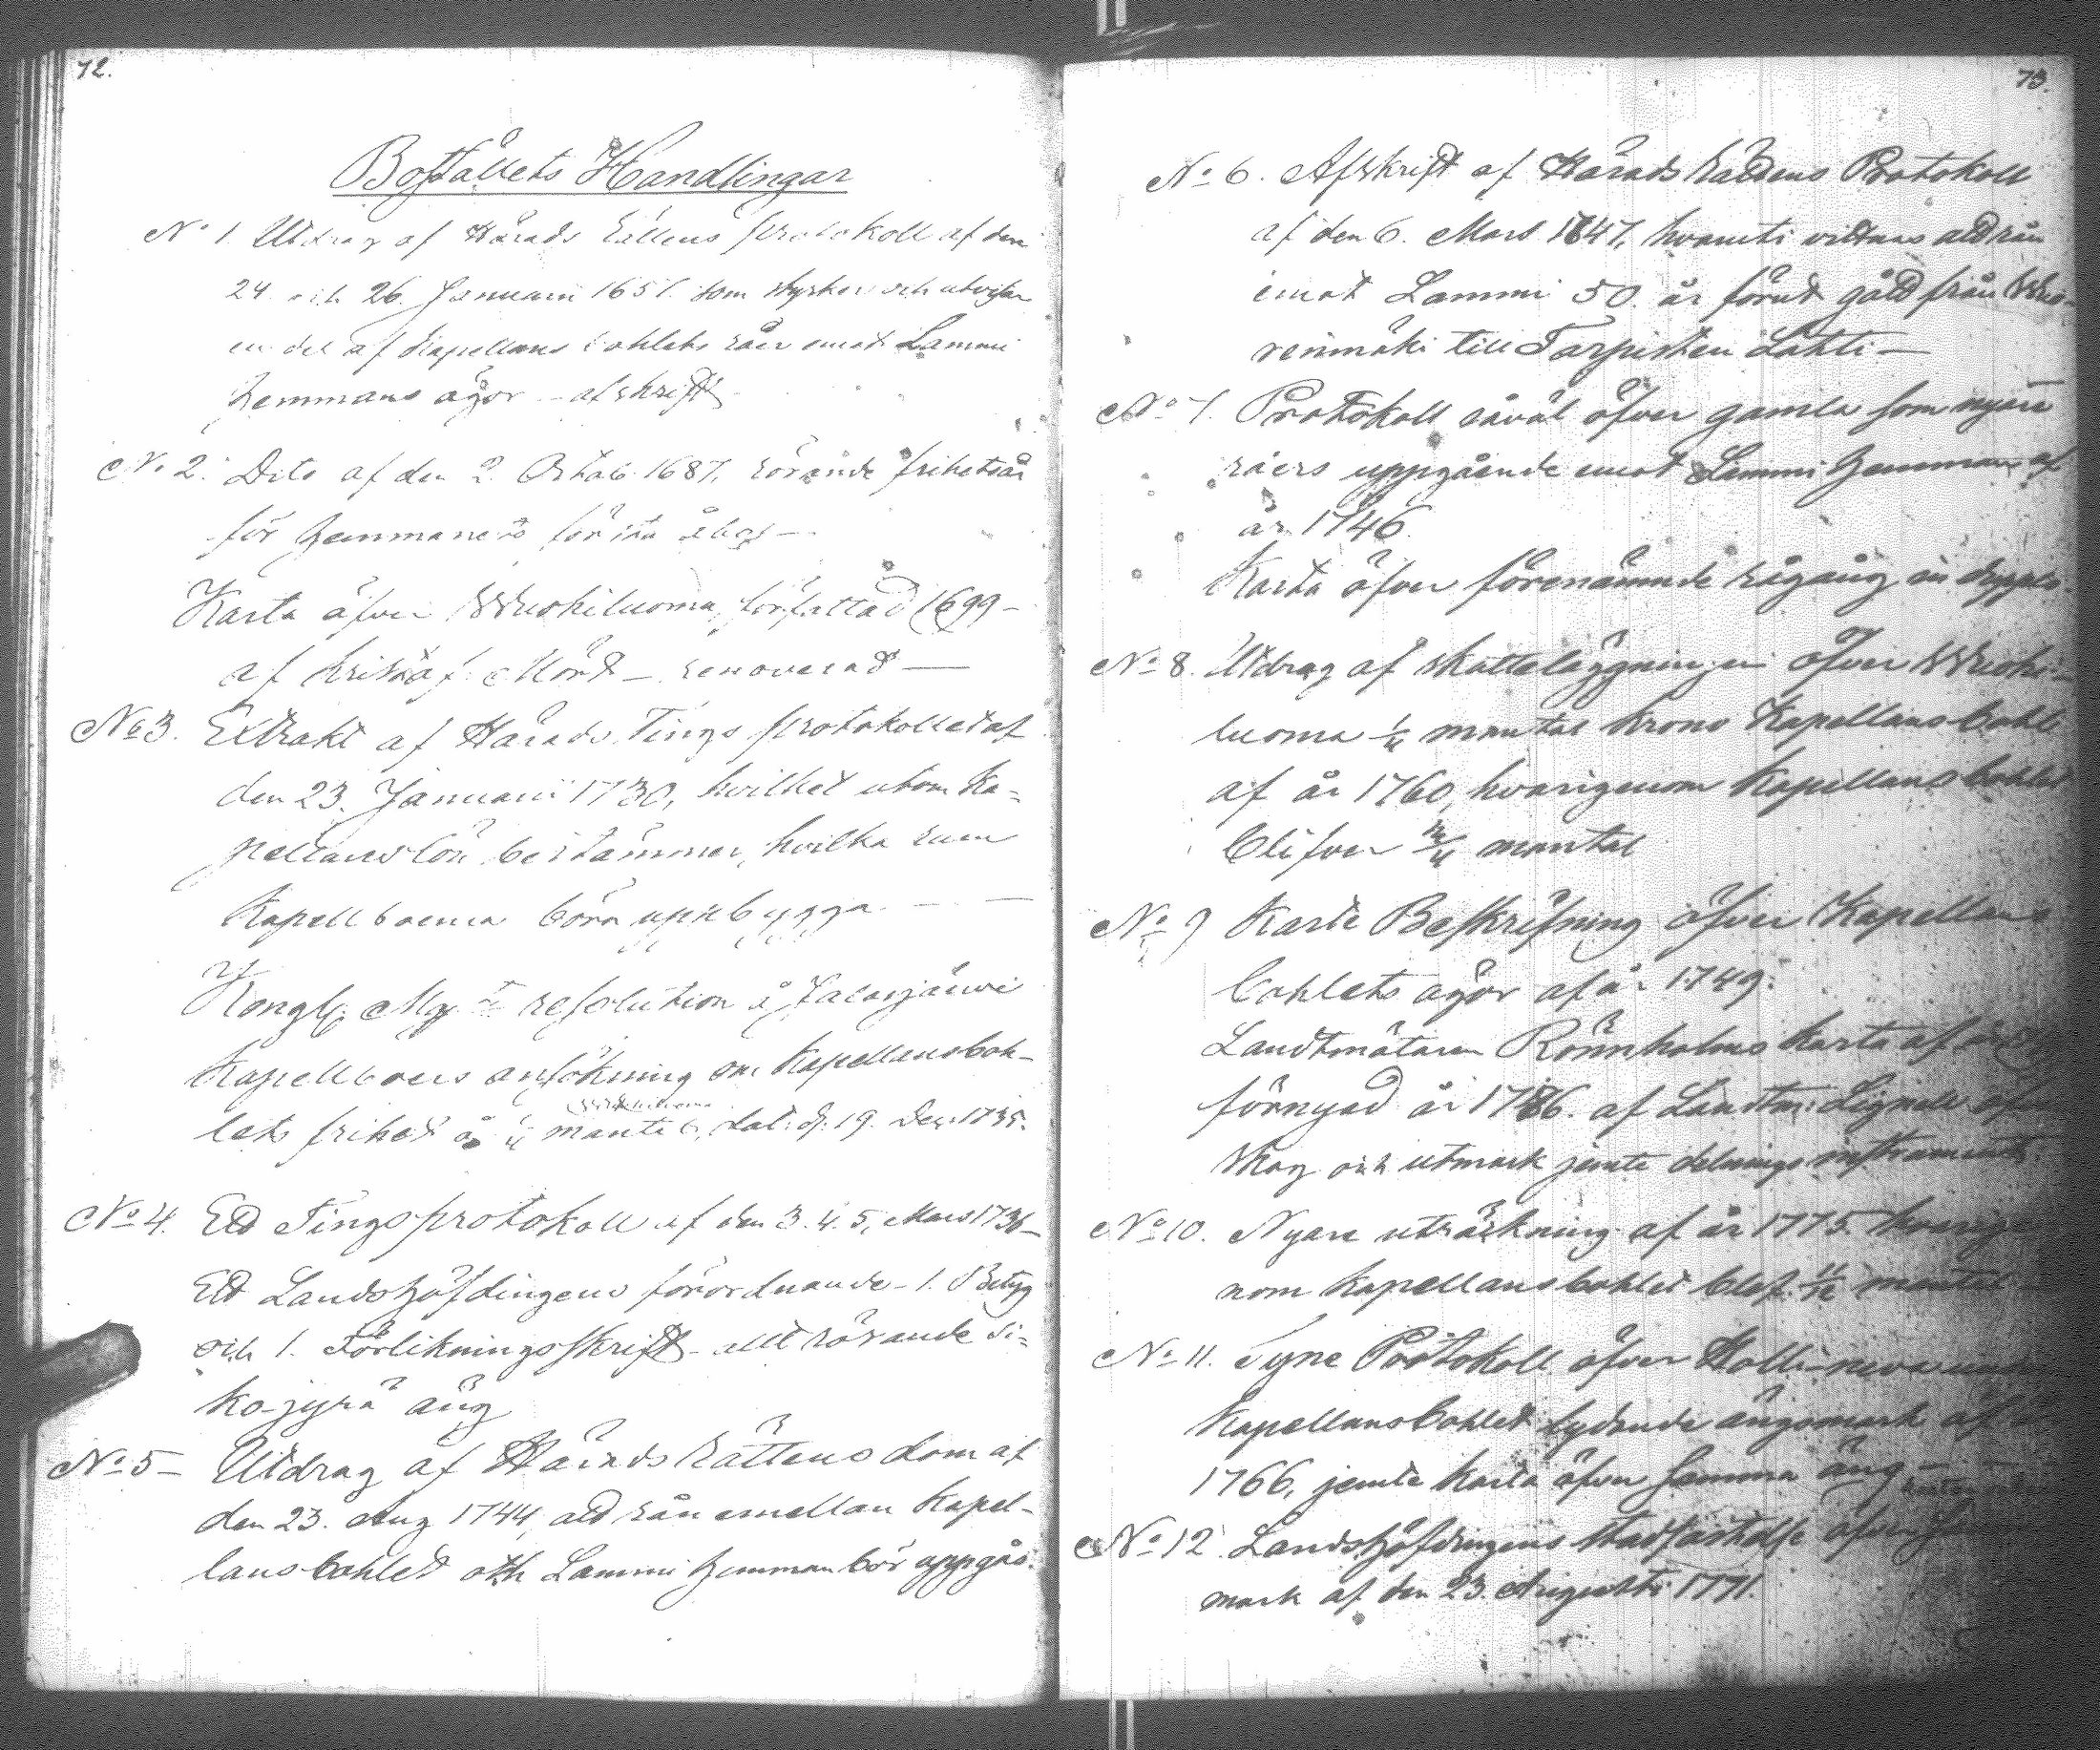 72.
Bostället's Handlingar
No 1. Utdrag af Härads Rättens protokoll af den
24 och 26. Januarii 1651. som styrker och utvisar
en del af Kapellans bohlets råer emot Lammi
hemmans ägor – afskrift
No 2. Dito af den 2. Octob. 1687, rörande frihetsår
för hemmanets första åbor –
Karta öfver Wuohiluoma, författad 1699 –
af Kristof. Mört – renoverad –
No 3. Extrakt af Härads Tings protokollet af
den 23. Januarii 1730, hvilket utom Ka=
pellans lön bestämmer, hvilka rum
Kapellboerna böra uppbygga – –
Kongl. Maj:ts resolution å Jalasjärvi
Kapellboers ansökning om Kapellansboh-
lets frihet å mantal, dat. d. 19. Dec. 1735.
No 4. Ett Tingsprotokoll af den 3. 4. 5. Mars 1736 –
Ett Landshöfdingens förordnande – 1. Betyg
och 1. Förlikningsskrift – allt rörande Si=
ko-jyrä äng
No 5 – Utdrag af Härads Rättens dom af
den 23. Aug 1744, att rån emellan Kapel-
lansbohlet och Lammi hemman bör uppgås.
73.
No 6. Afskrift af Härads Rättens Protokoll
af den 6. Mars 1647, hvaruti vittnas att rån
emot Lammi 50 år förut gått från
renmäki till Tarpisten Lahti –
No 7. Protokoll såväl öfver gamla som nyare
råers uppgående emot Lammi hemman af
år 1746.
Karta öfver förenämnde rågång in duplo.
No 8. Utdrag af skattläggningen öfver Wuohi-
luoma mantal Krono Kapellansbohle
af år 1760, hvarigenom Kapellansbohlet
blifver mantal
No 9 Karte Beskrifning öfver Kapellans
bohlets ägor af år 1749.
Landtmätaren Rönnholms Karta af år
förnyad år 1786. af Landtm: Lignell
skog och utmark jemte delnings instrument.
No 10. Nyare uträkning af år 1775. hvarige
nom Kapellansbohlet blef 11/12 mantal
No 11. Syne Protokoll öfver
Kapellansbohlet lydande ängsmark af
1766, jemte Karta öfver samma äng –
No 12. Landshöfdingens stadfästelse öfver
mark af den 23. Augusti 1771.